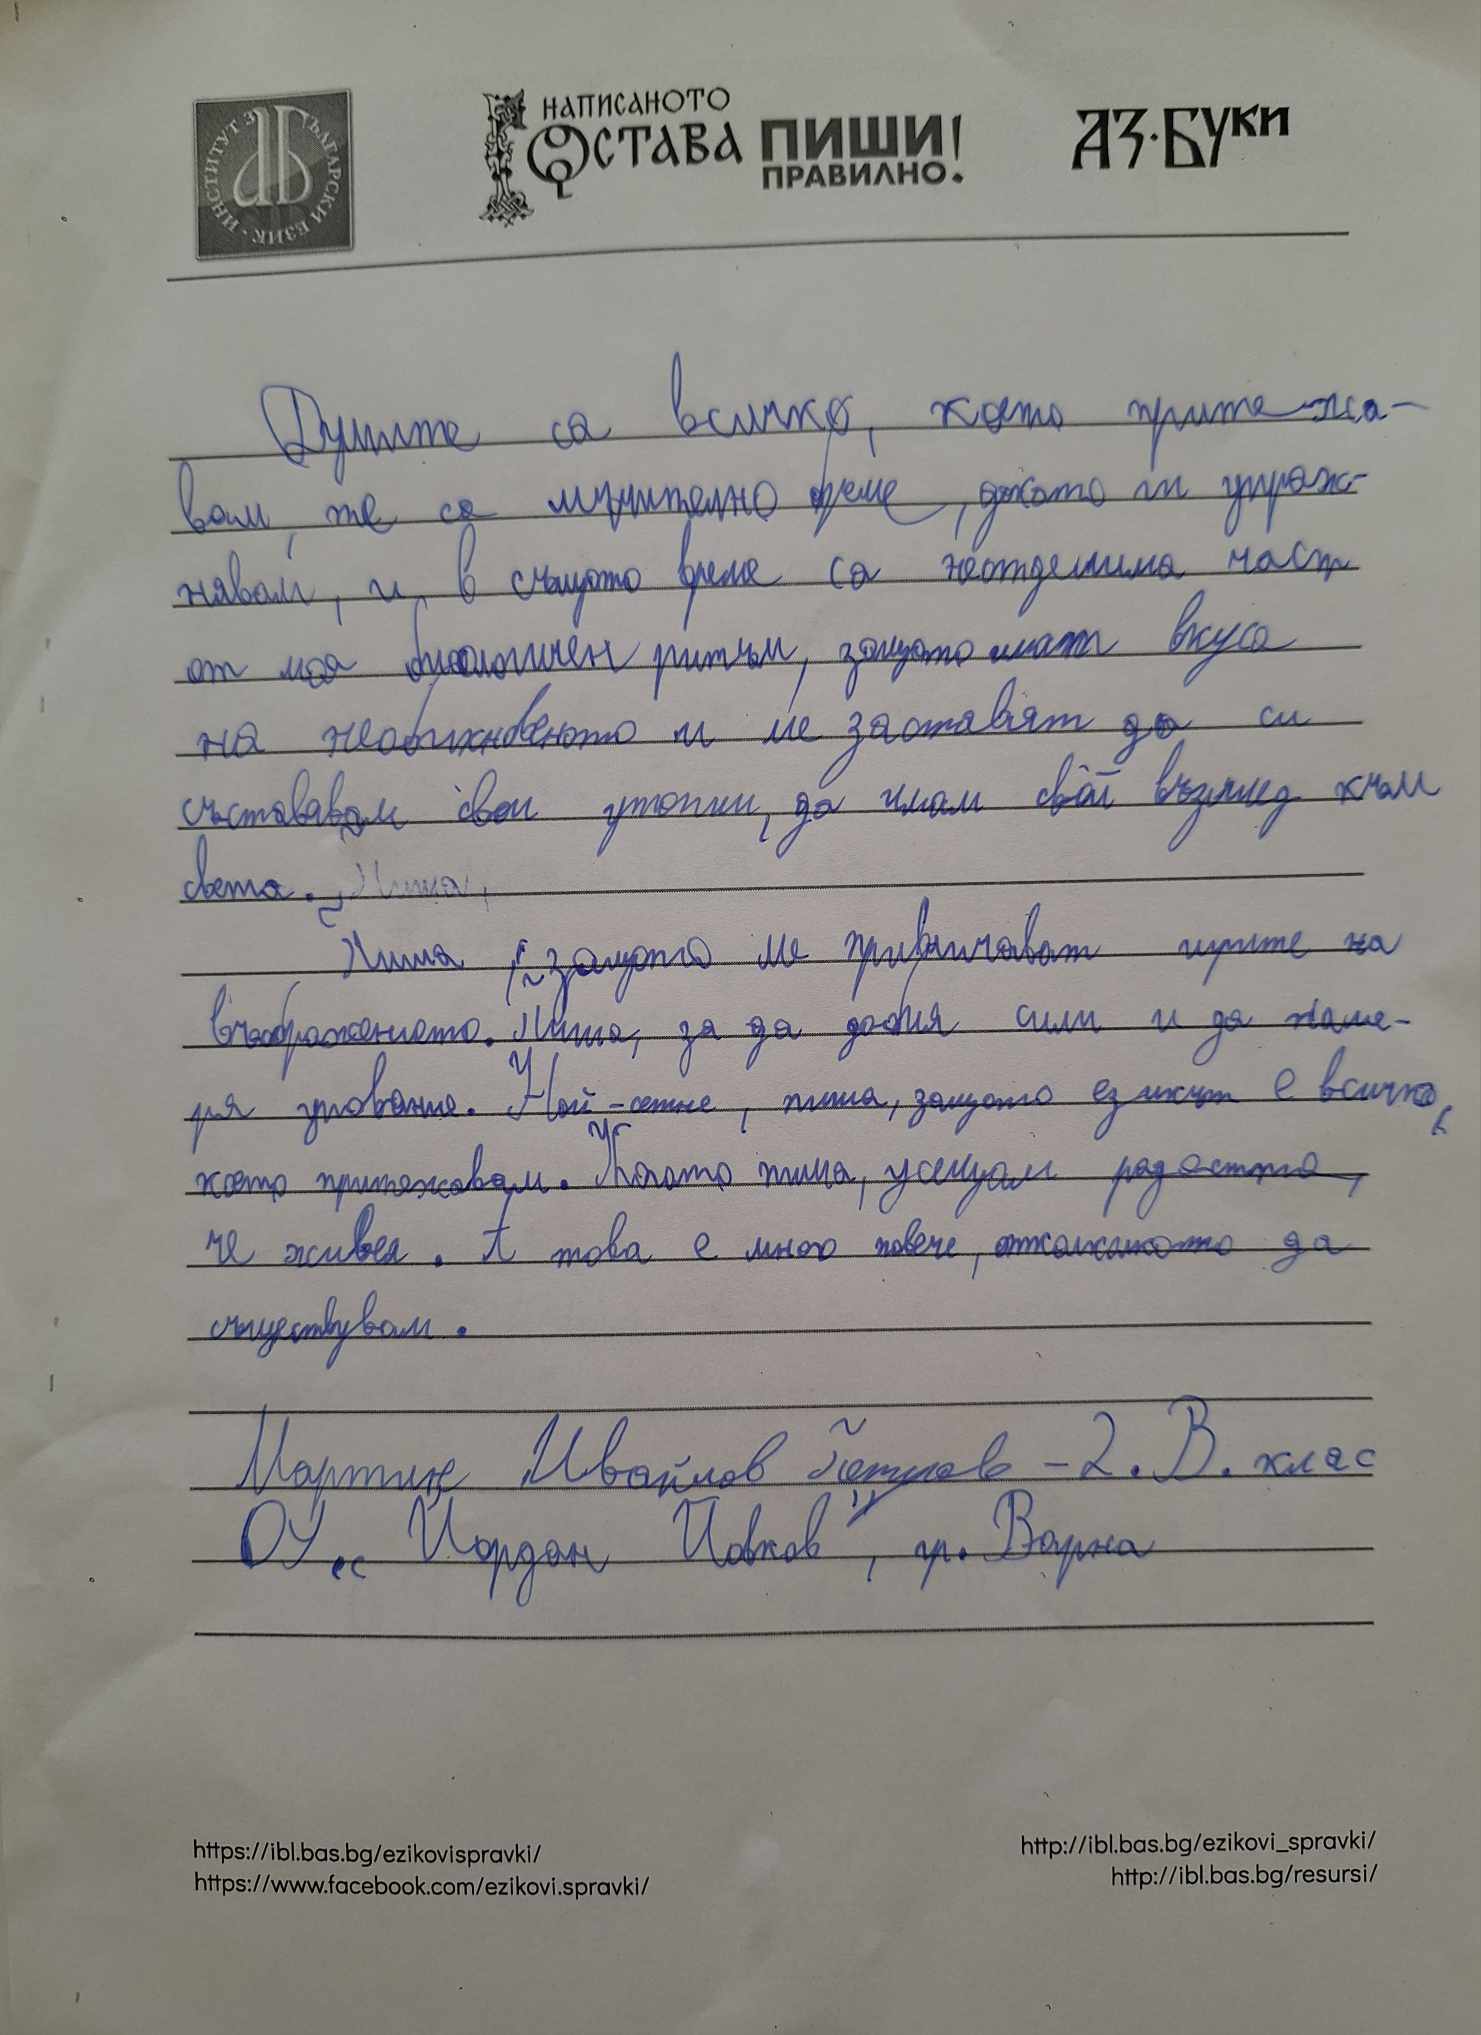 ИНСТИТУТ ЗА БЪЛГАРСКИ ЕЗИК
НАПИСАНОТО
ОСТАВА
ПИШИ!
ПРАВИЛНО.
АЗ·БУКИ
Думите са всичко, което притежа-
вам, те са мъчително бреме, докато ги упраж-
нявам, и в същото време са неотделима част
от моя биологичен ритъм, защото имат вкуса
на необикновеното и ме заставят да си
съставям свои утопии, да имам свой възглед към
света. Пиша,
Пиша, защото ме привличат игрите на
въображението. Пиша, за да добия сили и да наме-
ря упование. Най-сетне, пиша, защото езикът е всичко,
което притежавам. Когато пиша, усещам радостта,
че живея. А това е много повече, отколкото да
съществувам.
Мартин Ивайлов – 2. В. клас
ОУ „Йордан Йовков“, гр. Варна
https://ibl.bas.bg/ezikovispravki/
http://ibl.bas.bg/ezikovi_spravki/
https://www.facebook.com/ezikovi.spravki/
http://ibl.bas.bg/resursi/